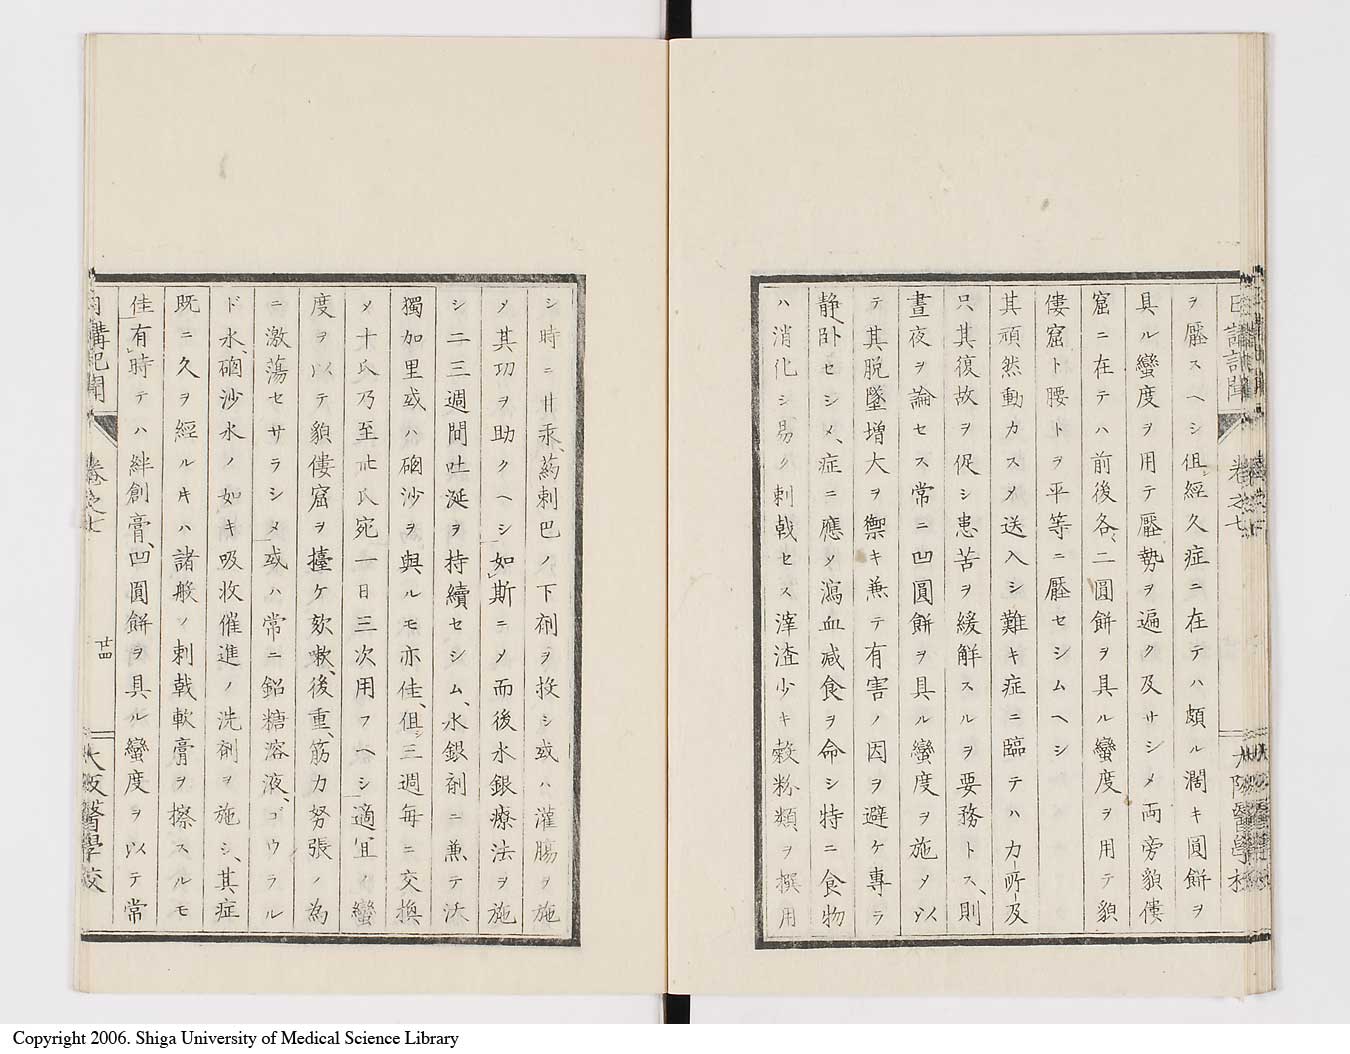 ヲ壓スヘシ但シ經久症ニ在テハ頗ル濶キ圓餅ヲ
具ル蠻度ヲ用テ壓勢ヲ遍ク及サシメ両旁貌僂
窟ニ在テハ前後各、二圓餅ヲ具ル蠻度ヲ用テ貌
僂窟ト腰トヲ平等ニ壓セシムヘシ
其頑然動カスメ送入シ難キ症ニ臨テハ力所及
只其復故ヲ促シ患苦ヲ緩解スルヲ要務トス、則
晝夜ヲ論セス常ニ凹圓餅ヲ具ル蠻度ヲ施メ以
テ其脱墜増大ヲ禦キ兼テ有害ノ因ヲ避ケ專ラ
静臥セシメ、症ニ應メ瀉血减食ヲ命シ特ニ食物
ハ消化シ易ク刺戟セス滓渣少キ穀粉類ヲ撰用
シ時ニ甘汞、葯刺巴ノ下剤ヲ投シ或ハ灌腸ヲ施
メ其功ヲ助クヘシ如斯ニメ而後水銀療法ヲ施
シ二三週間吐涎ヲ持續セシム、水銀剤ニ兼テ沃
獨加里或ハ硇沙ヲ與ルモ亦佳、但シ三週毎ニ交換
メ十氏乃至卅氏宛一日三次用フヘシ適宜ノ蠻
度ヲ以テ貌僂窟ヲ擡ケ欬嗽、後重、筋力努張ノ為
ニ激蕩セサラシメ或ハ常ニ鉛糖溶液、ゴウラル
ド水、硇沙水ノ如キ吸收催進ノ洗剤ヲ施シ、其症
既ニ久ヲ經ルキハ諸般ノ刺戟軟膏ヲ擦スルモ
佳有時テハ絆創膏、凹圓餅ヲ具ル蠻度ヲ以テ常
日講記聞
卷之七
廿四
大阪醫學校
Copyright 2006. Shiga University of Medical Science Library